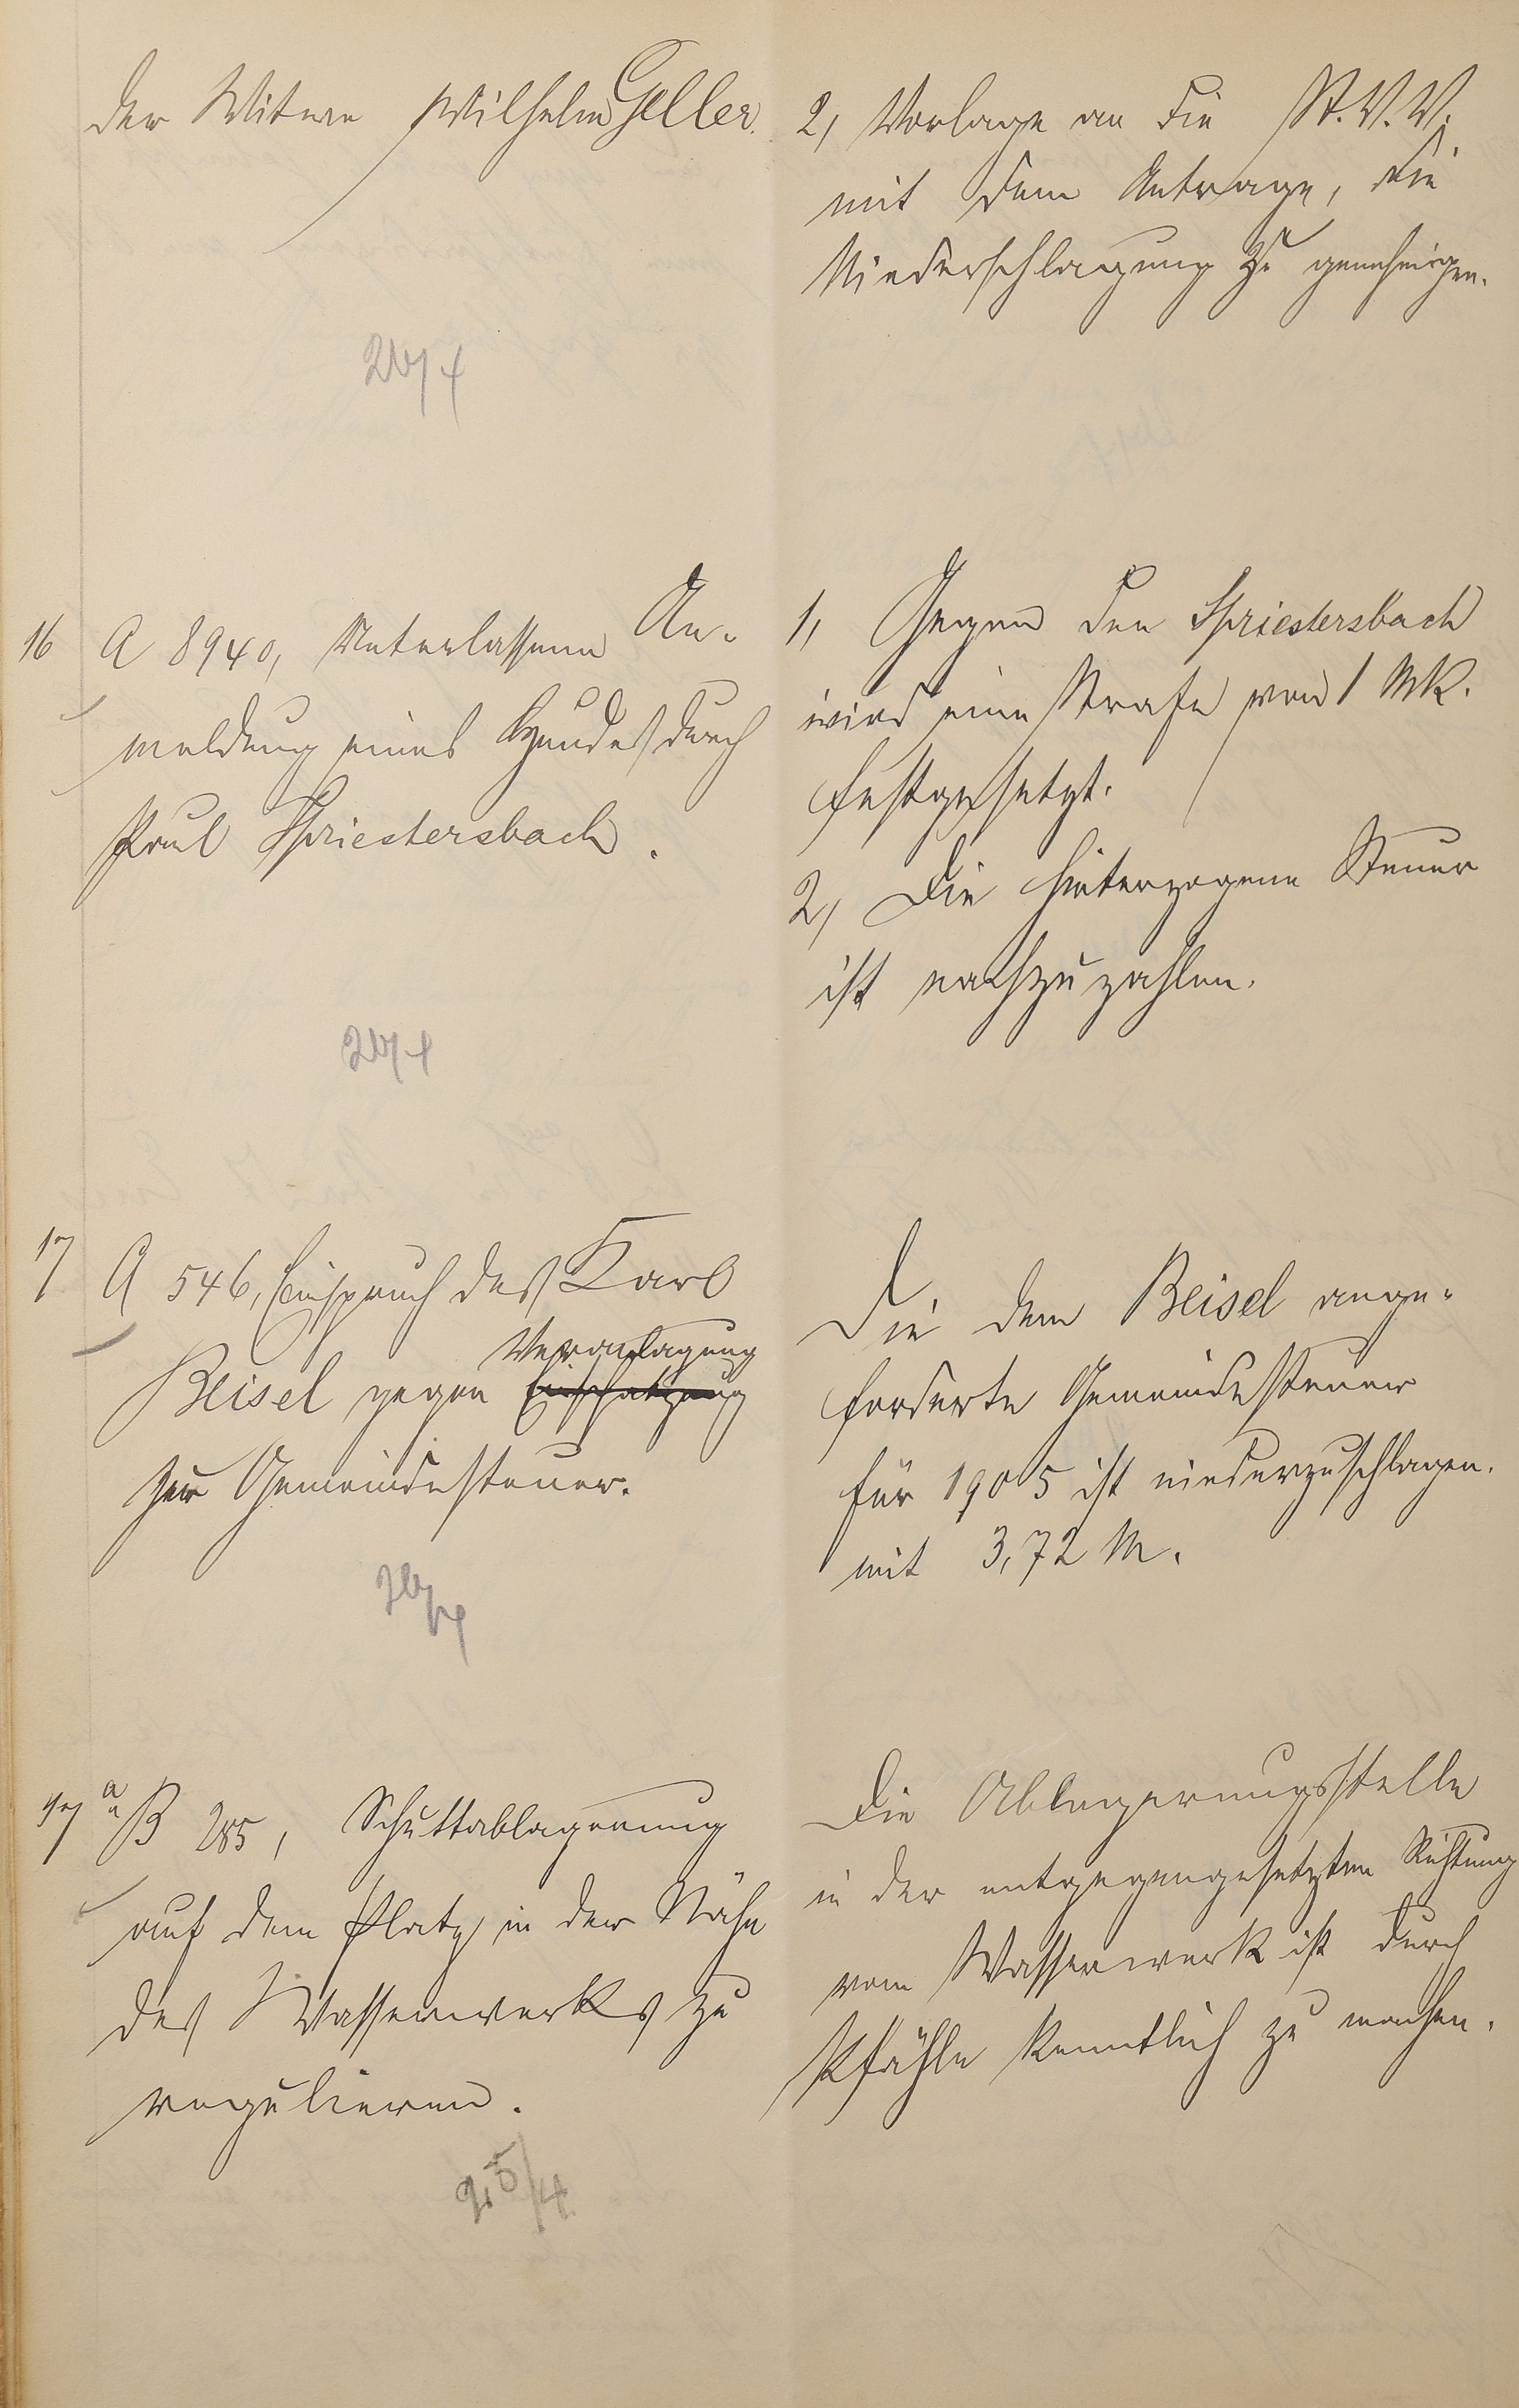 der Witwe Wilhelm Geller.
2, Vorlage an die St. V. V.
mit dem Antrage, die
Niederschlagung zu genehmigen.
26/4
16 A 8940, Unterlassene An-
meldung eines Hundes durch
Paul Spriestersbach.
1, Gegen den Spriestersbach
wird eine Strafe von 1 Mk.
festgesetzt.
2, Die hinterzogene Steuer
ist nachzuzahlen.
26/4
17 A 546, Einspruch des Karl
Veranlagung
Beisel gegen Einschätzung
zur Gemeindesteuer.
Die dem Beisel ange-
forderte Gemeindesteuer
für 1905 ist niederzuschlagen.
mit 3,72 M.
26/4
17 a B 285, Schuttablagerung
auf dem Platz in der Nähe
des Wasserwerks zu
regulieren.
Die Ablagerungsstelle
in der entgegengesetzten Richtung
vom Wasserwerk ist durch
Pfähle kenntlich zu machen.
25/4